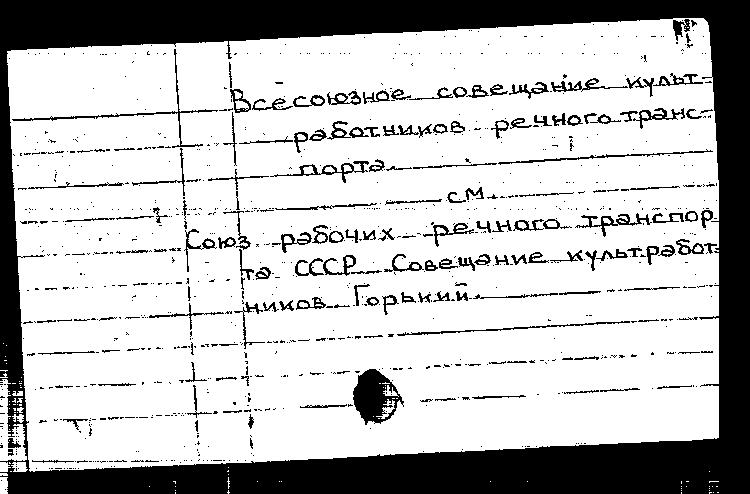 Всесоюзное совещание культ-
работников речного транс-
порта.
см.
Союз рабочих речного транспор
та СССР Совещание культработ-
ников. Горький.